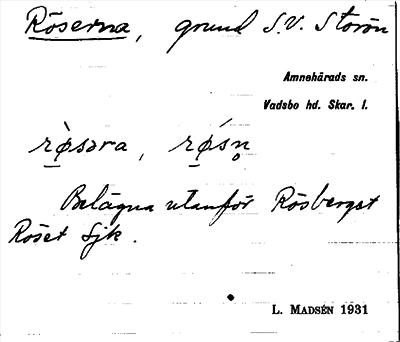 Röserna, grund S.V. Storön
Amnehärads sn.
Vadsbo hd. Skar. l.
rø̀səra, rǿsn̥
Belägna utanför Rösberget
Röset Sjk.
L. MADSÉN 1931